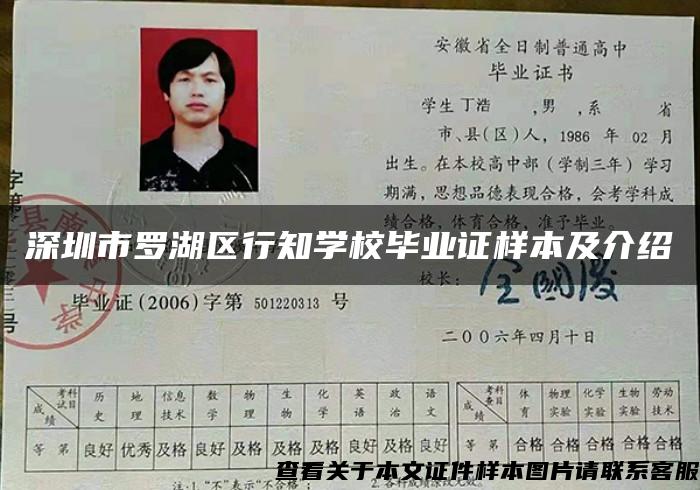 安徽省全日制普通高中
毕业证书
学生 丁浩 ,男 ,系 省
市、县(区)人，1986 年 02 月
出生。在本校高中部（学制三年）学习
期满，思想品德表现合格，会考学科成
绩合格，体育合格，准予毕业。
深圳市罗湖区行知学校毕业证样本及介绍
校长：
毕业证(2006)字第 501220313 号
二〇〇六年四月十日
考科试目 历史 地理 信息技术 数学 物理 生物 化学 英语 政治 语文 考科查目 体育 物理实验 化学实验 生物实验 劳动技术
成绩 成绩
等第 良好 优秀 及格 良好 及格 及格 及格 良好 及格 良好 等第 合格 合格 合格 合格 合格
查看关于本文证件样本图片请联系客服
注:1."不"表示"不合格" 2.各科成绩涂改无效。